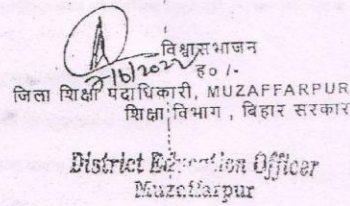 विश्वासभाजन
2/6/2022 ह० /-
जिला शिक्षा पदाधिकारी, MUZAFFARPUR
शिक्षा विभाग , बिहार सरकार
District Education Officer
Muzaffarpur